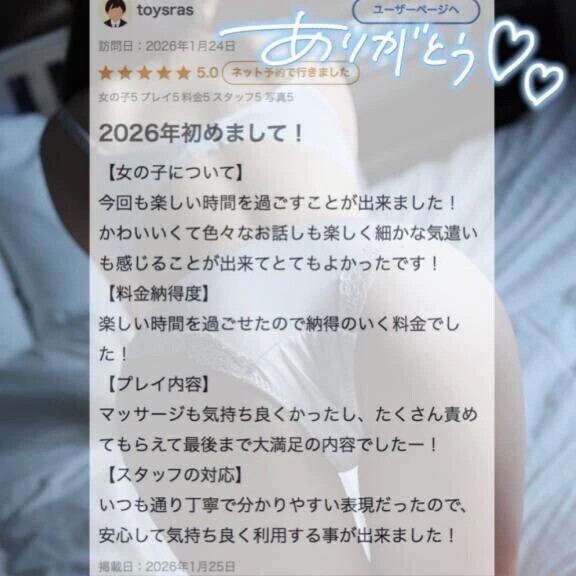 toysras
ユーザーページへ
訪問日：2026年1月24日
ありがとう♡♡
★★★★★ 5.0 ネット予約で行きました
女の子5 プレイ5 料金5 スタッフ5 写真5
2026年初めまして！
【女の子について】
今回も楽しい時間を過ごすことが出来ました！
かわいいくて色々なお話しも楽しく細かな気遣い
も感じることが出来てとてもよかったです！
【料金納得度】
楽しい時間を過ごせたので納得のいく料金でし
た！
【プレイ内容】
マッサージも気持ち良くかったし、たくさん責め
てもらえて最後まで大満足の内容でしたー！
【スタッフの対応】
いつも通り丁寧で分かりやすい表現だったので、
安心して気持ち良く利用する事が出来ました！
掲載日：2026年1月25日